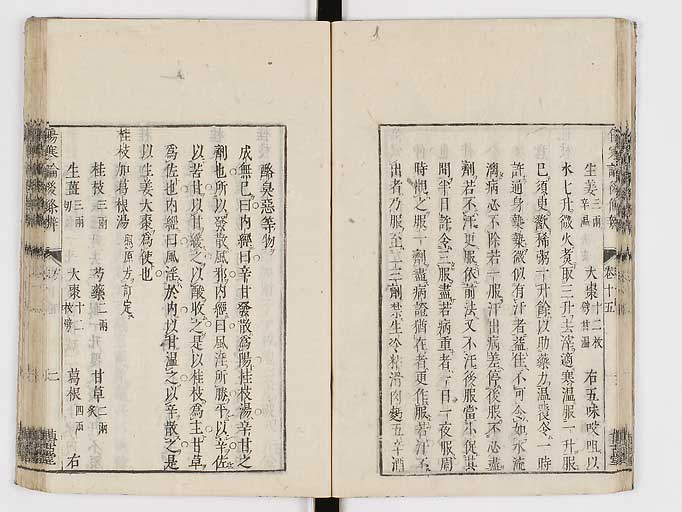 生姜三兩 大棗十二枚 右五味㕮咀以
水七升微火煑取三升去滓適寒温服一升服
已須更歠稀粥一升餘以助藥力温覆令一時
許通身漐漐微似有汗者益佳不可令如水流
漓病必不除若一服汗出病差停後服不必盡
劑若不汗更服依前法又不汗後服當小促其
間半日許令三服盡若病重者一日一夜服周
時觀之服一劑盡病證猶在者更作服若汗不
出者乃服至二三劑禁生冷粘滑肉麪五辛酒
卷十五
酪臭惡等物
成無已曰内經曰辛甘發散爲陽桂枝湯辛甘之
劑也所以發散風邪内經曰風淫所勝平以辛佐
以苦甘以甘緩之以酸收之是以桂枝爲主甘草
爲佐也内經曰風淫於内以甘温之以辛散之是
以生姜大棗爲使也
桂枝加葛根湯
桂枝三兩 芍藥二兩 甘草二兩炙
生薑三兩切 大棗十二枚劈 葛根四兩 右
傷寒論後條辨